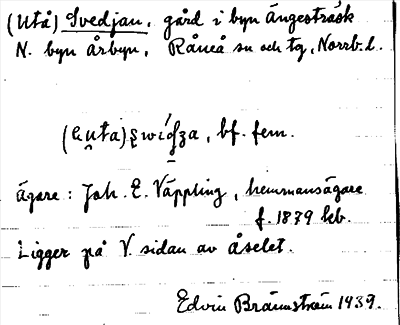 (Utå) Svedjan, gård i byn Ängesträsk
N. byn Årbyn, Råneå sn och tg, Norrb. l.
bf. fem.
Ägare: Joh. E. Väppling, hemmansägare
f. 1879 hb.
Ligger på V. sidan av åselet.
Edvin Brännström 1939.